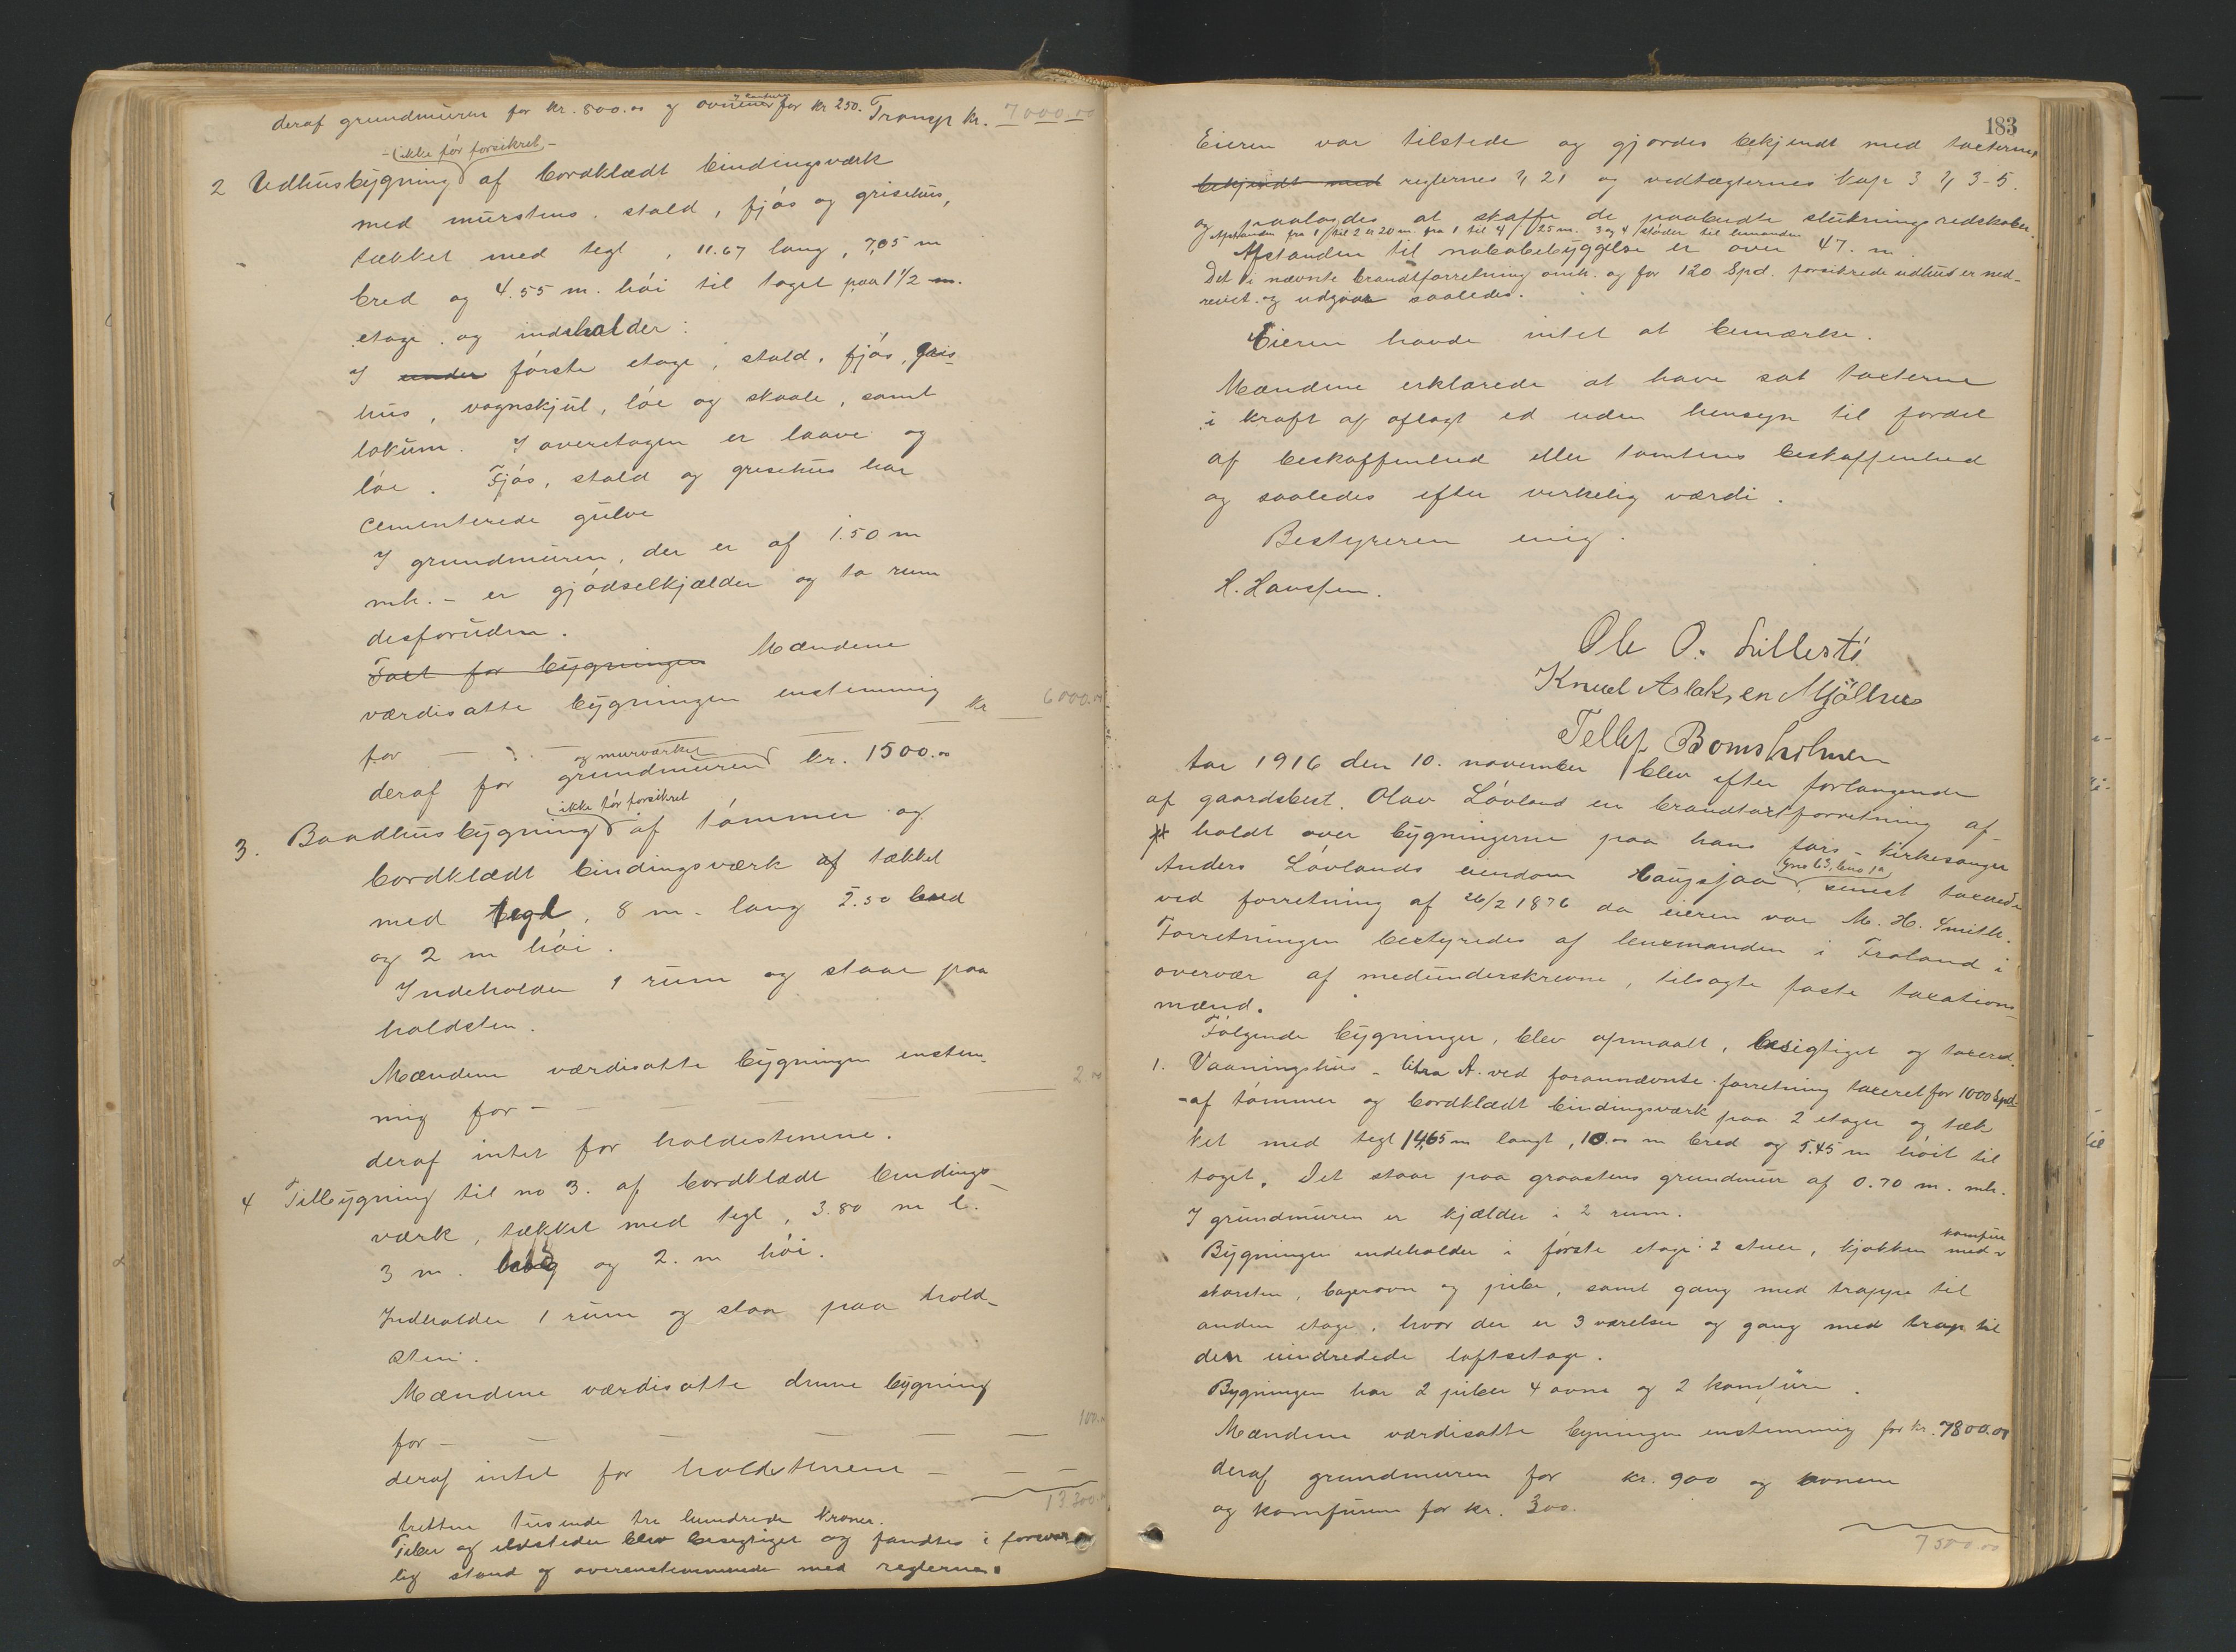 deraf grundmuren for kr. 800.00 og ovnener for kr 250. Transp kr. 7000.00
ikke før forsikret
2 Udhusbygning af bordklædt bindingsværk
med murstens stald, fjøs og grisehus,
tækket med tegl, 11.67 lang, 7,05 m
bred og 4.55 m. høi til taget paa 1 1/2 m.
etage og indeholder:
I under første etage, stald, fjøs, gris-
hus, vognskjul, løe og skaale, samt
lokum. I overetagen er laave og
løe. Fjøs, stald og grisehus har
cementerede gulve
I grundmuren, der er af 1.50 m
mh. - er gjødselkjælder og to rum
desforuden.
Taxt for bygningen Mændene
værdisatte bygningen enstemmig
for — kr 6000.00
og murværket
deraf for grundmuren kr. 1500.00
ikke før forsikret
3. Baadhusbygning af tømmer og
bordklædt bindingsværk af tækket
med tegl, 8 m. lang 2.50 bred
og 2 m høi.
Indeholder 1 rum og staar paa
holdsten.
Mændene værdisatte bygningen enstem-
mig for — 2 00
deraf intet for holdestenene.
4 Tilbygning til no 3. af bordklædt bindings-
værk, tækket med tegl, 3.80 m l.
3 m. og 2. m høi.
Indholder 1 rum og staar paa hold-
sten.
Mændene værdisatte denne bygning
for — 100.00
deraf intet for holdstenene —
13300.00
tretten tusende tre hundrede kroner.
Piber og ildsteder blev besigtiget og fandtes i forsvar-
lig stand og overenstemmende med reglerne.
183
Eieren var tilstede og gjordes bekjendt med taxterne,
bekjendt med reglernes § 21 og vedtægternes kap 3 § 3-5.
og paalagdes at skaffe de paabudte slukningsredskaber.
Afstanden fra 1 til 2 er 20 m. fra 1 til 4 25 m. 3 og 4 støder til hinanden
Afstanden til nabobebyggelse er over 47. m.
Det i nævnte brandtforretning omh. og for 120 Spd. forsikrede udhus er ned-
revet og udgaar saaledes.
Eieren havde intet at bemærke.
Mændene erklærede at have sat taxterne
i kraft af aflagt ed uden hensyn til fordel
af beskaffenhed eller tomtens beskaffenhed
og saaledes efter virkelig værdi.
Bestyreren enig.
H. Hansen.
Ole O. Lillesti
Knud Aslaksen Mjölhus
Tellef Bomsholmen
Aar 1916 den 10. november blev efter forlangende
af gaardsbest. Olav Løvland en brandtaxtforretning af-
holdt over bygningerne paa hans fars - kirkesanger
gno 63, bno 1a
Anders Løvlands eiendom Haugsjaa senest taxeret
ved forretning af 26/2 1876 da eieren var M. H. Smith.
Forretningen bestyredes af lensmanden i Froland i
overvær af medunderskrevne, tilsagte faste taxations-
mænd.
Følgende bygninger, blev opmaalt, besigtiget og taxeret.
1. Vaaningshus - litra A. ved forannævnte forretning taxeret for 1000 Spd.
- af tømmer og bordklædt bindingsværk paa 2 etager og tæk
ket med tegl 14,65 m langt, 10.00 m bred og 5.45 m høit til
taget. Det staar paa graastens grundmur af 0.70 m. mh.
I grundmuren er kjælder i 2 rum.
komfur
Bygningen indeholder i første etage: 2 stuer, kjøkken med
skorsten, bagerovn og pibe, samt gang med trappe til
anden etage, hvor der er 3 værelser og gang med trap til
den uindredede loftsetage.
Bygningen har 2 piber 4 ovne og 2 komfürer.
Mændene værdisatte bygningen enstemmig for kr. 7800.00
deraf grundmuren for kr. 900 og ovnene
og komfuren for kr. 300.
7500.00